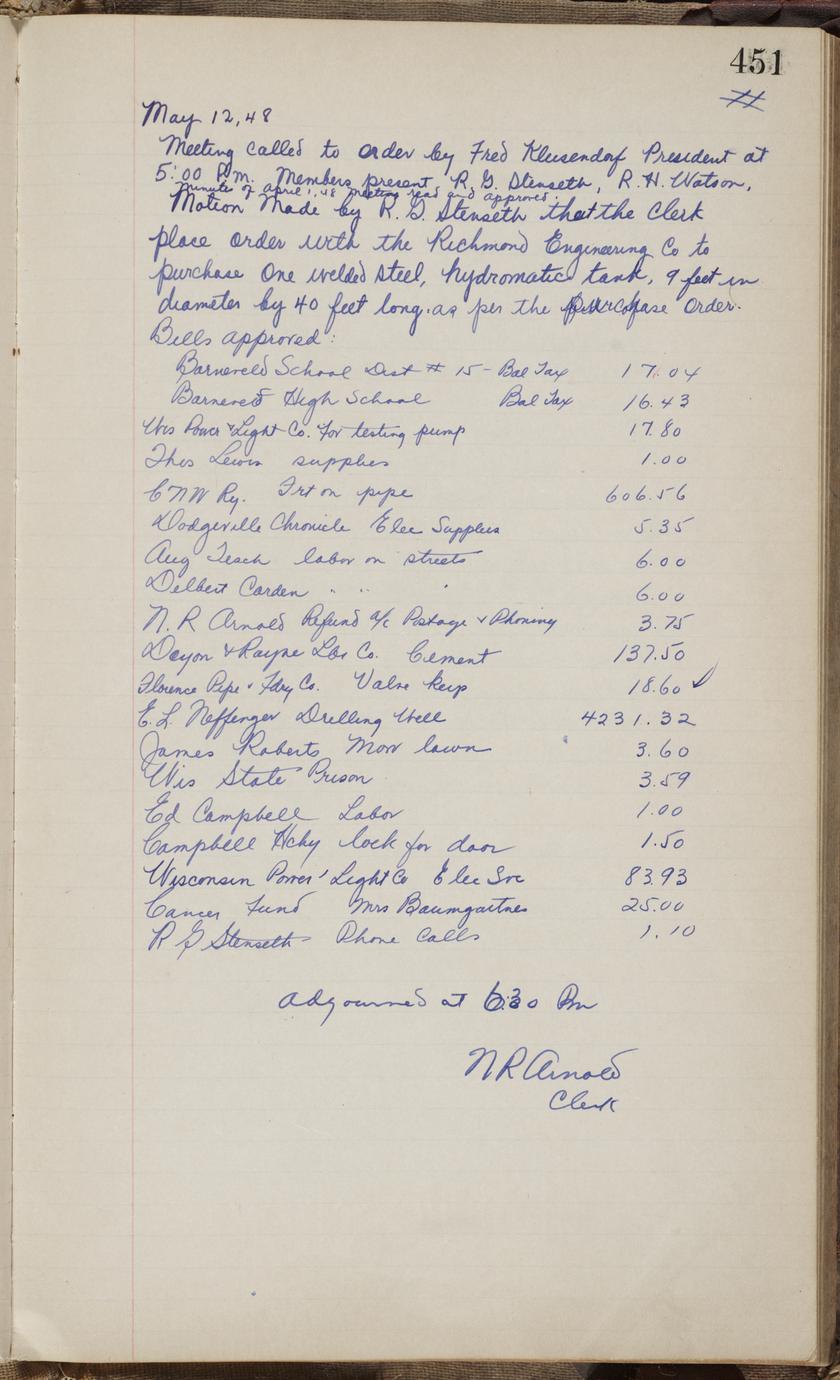 451
May 12, 48
Meeting called to order by Fred Klusendorf President at
5:00 P.m. Members present R. G. Stenseth, R. H. Watson,
Minutes of April 1, 48 meeting read and approved.
Motion Made by R. G. Stenseth that the Clerk
place order with the Richmond Engineering Co to
purchase One welded steel, hydromatic tank, 9 feet in
diameter by 40 feet long. as per the purchase Order.
Bills approved:
Barneveld School Dist # 15 - Bal Tax 17.04
Barneveld High School Bal Tax 16.43
Wis Power & Light Co. For testing pump 17.80
Thos Lewis supplies 1.00
C N W Ry. Frt on pipe 606.56
Dodgeville Chronicle Elec Supplies 5.35
Aug Tesch labor on streets 6.00
Delbert Carden " " " 6.00
N. R Arnold Refund a/c Postage & Phoning 3.75
& Rayne Lbr Co. Cement 137.50
Florence Pipe & Fdry Co. Valve 18.60 ✓
E. L. Neffenger Drilling Well 4231.32
James Roberts Mow lawn 3.60
Wis State Prison 3.59
Ed Campbell Labor 1.00
Campbell Hdwy lock for door 1.50
Wisconsin Power & Light Co Elec Svc 83.93
Cancer Fund Mrs Baumgartner 25.00
R G Stenseth Phone Calls 1.10
Adjourned at 6:30 Pm
N R Arnold
Clerk